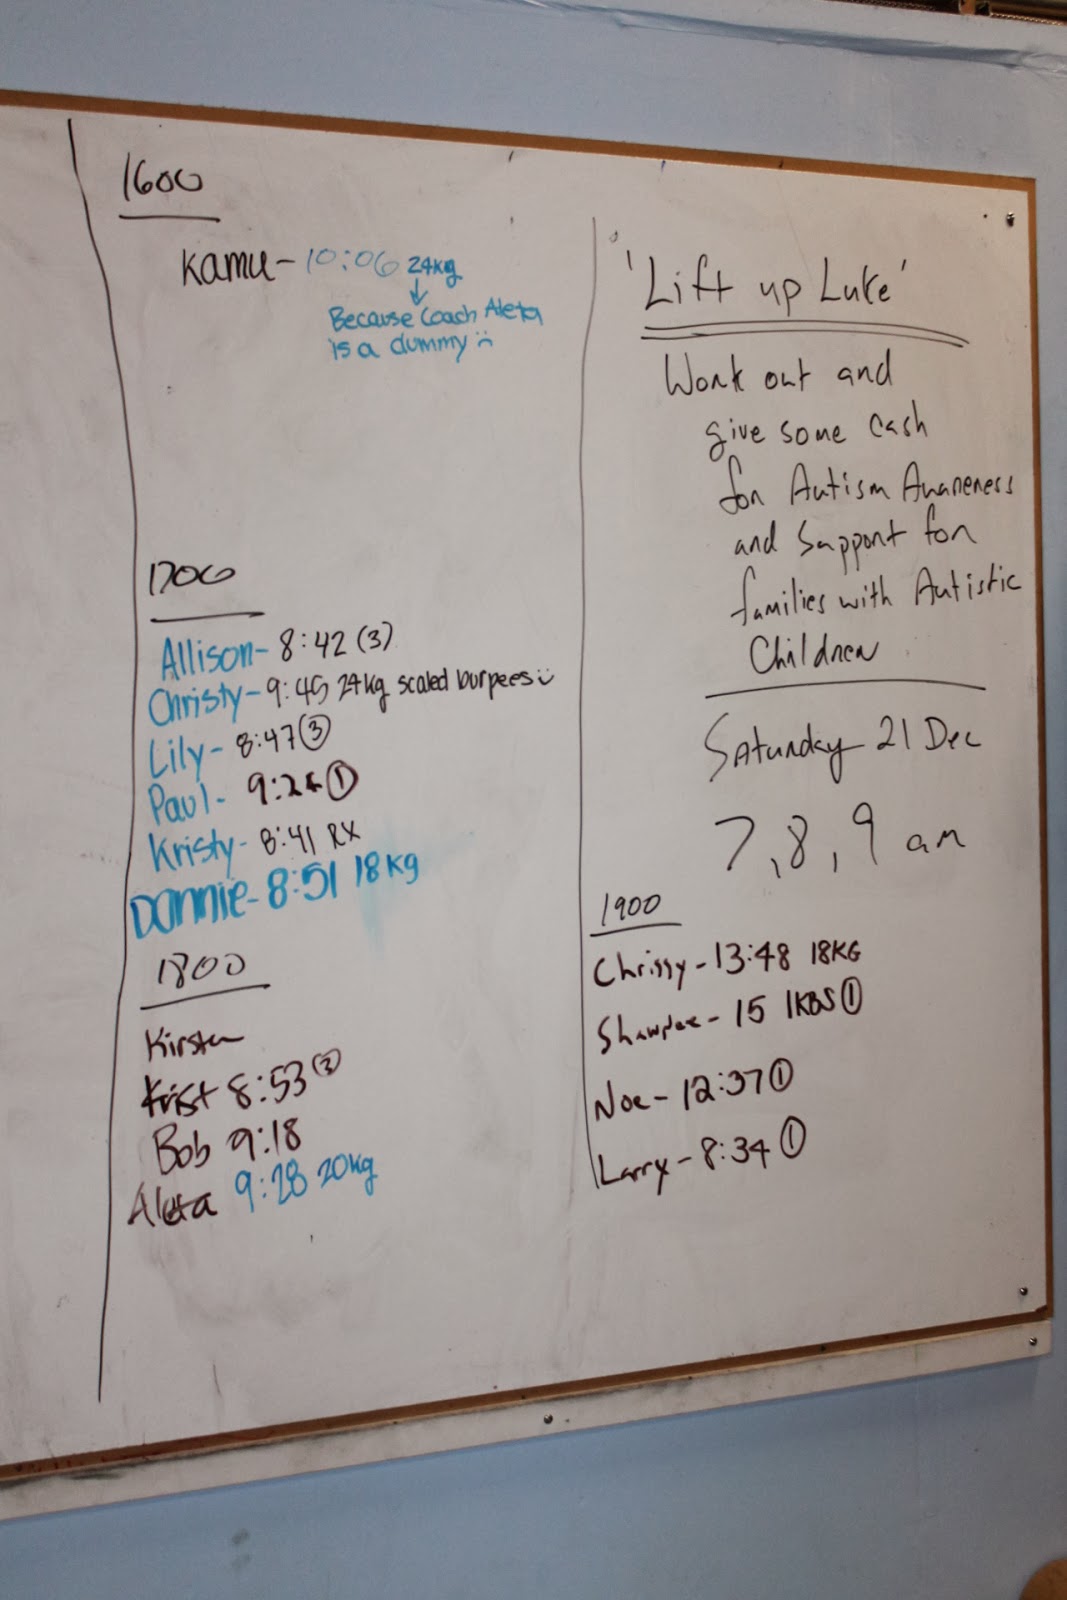 1600
Kamu- 10:06 24kg
Because Coach Aleta
is a dummy
1700
Allison- 8:42 (3)
Christy- 9:45 24kg scaled burpees
Lily- 8:47 3
Paul- 1
Kristy- 8:41 RX
Dannie- 8:51 18kg
1800
Kirsten
Krist 8:53
Bob 9:18
Aleta 9:28 20kg
'Lift up Luke'
Work out and
give some cash
for Autism Awareness
and Support for
families with Autistic
Children
Saturday 21 Dec
7, 8, 9 am
1900
Chrissy- 13:48 18KG
15 1KBS 1
Noe- 12:37 1
Larry- 8:34 1